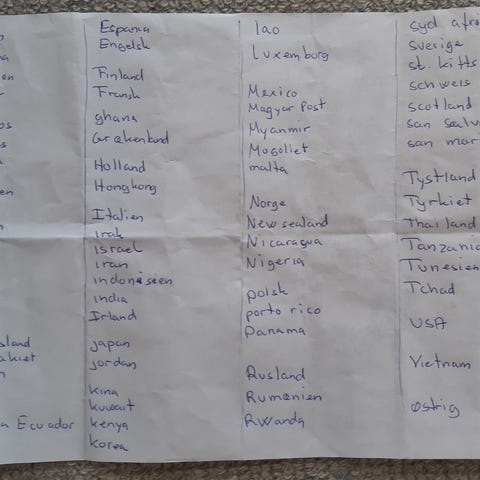 Ecuador
Espana
Engelsk
Finland
Fransk
ghana
Grækenland
Holland
Hongkong
Italien
irak
israel
iran
indonisien
india
Irland
japan
jordan
kina
kuwait
kenya
korea
lao
Luxemborg
Mexico
Magyar Post
Myanmir
Mogoliet
malta
Norge
New sealand
Nicaragua
Nigeria
polsk
porto rico
Panama
Rusland
Rumenien
Rwanda
syd afr
sverige
st. kitts
schweis
scotland
san salv
san mar
Tystland
Tyrkiet
Thailand
Tanzania
Tunesien
Tchad
USA
Vietnam
østrig